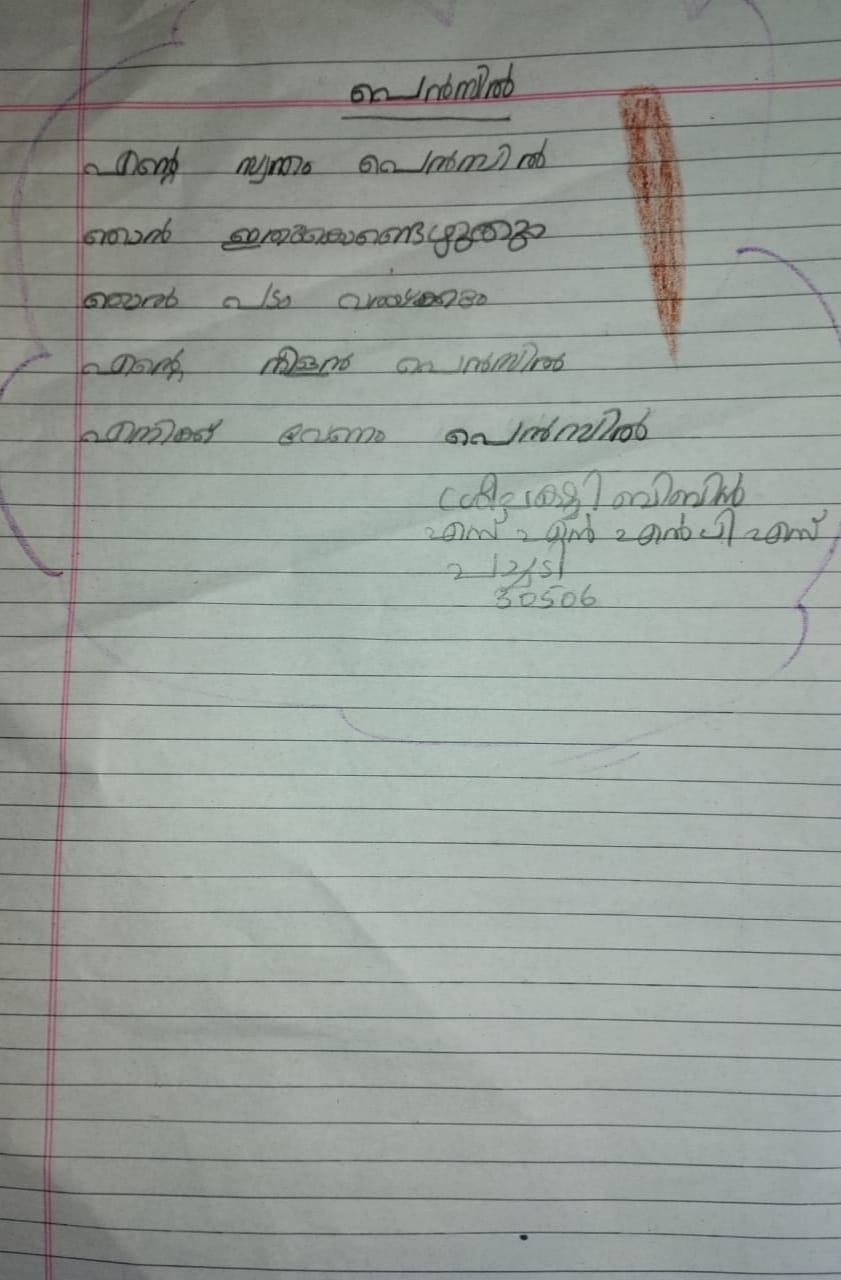 പെൻസിൽ
എന്റെ സ്വന്തം പെൻസിൽ
ഞാൻ ഇതുകൊണ്ടെഴുതും
ഞാൻ പടം വരയ്ക്കും
എന്റെ നീളൻ പെൻസിൽ
എനിക്ക് വേണം പെൻസിൽ
ബിബിൻ
എസ് എൻ എൽ പി എസ്
30506